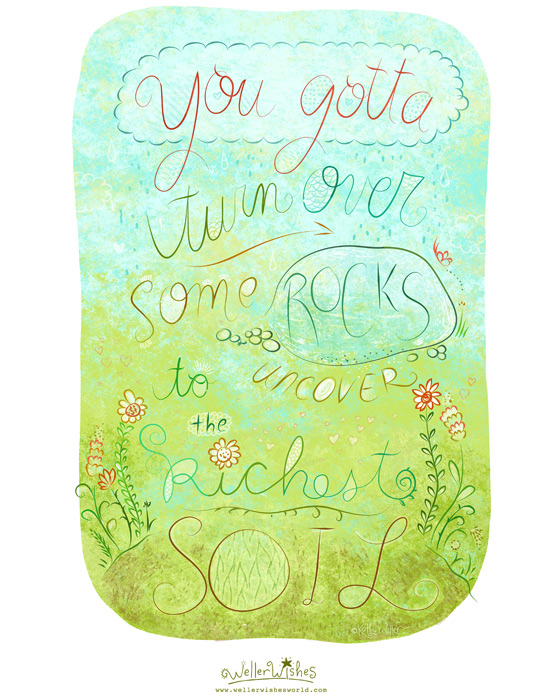 You gotta
turn over
some ROCKS
to UNCOVER
the
Richest
SOIL
WellerWishes
www.wellerwishesworld.com